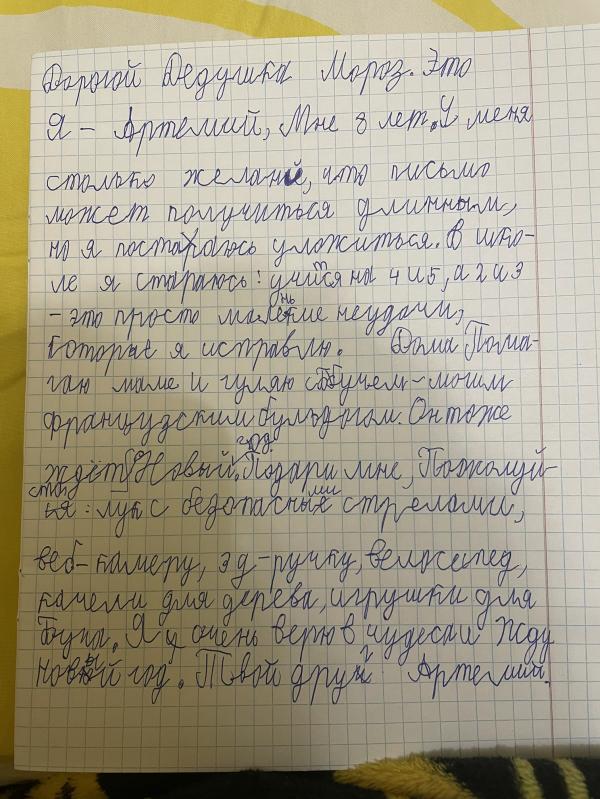 Дорогой Дедушка Мороз. Это
Я - Артемий, Мне 8 лет. У меня
столько желаний, что письмо
может получиться длинным,
но я постараюсь уложиться. В шко-
ле я стараюсь: учится на 4 и 5, а 2 и 3
- это просто маленькие неудачи,
которые я исправлю. Дома Пома-
гаю маме и гуляю с Бучем - моим
французским бульдогом. Он тоже
ждёт Новый год. Подари мне, Пожолуй-
ста: лук с безопасными стрелами,
веб-камеру, 3д-ручку, велосипед,
качели для дерева, игрушки для
Буча. Я очень верю в чудеса и Жду
новый год. Твой друг Артемий.